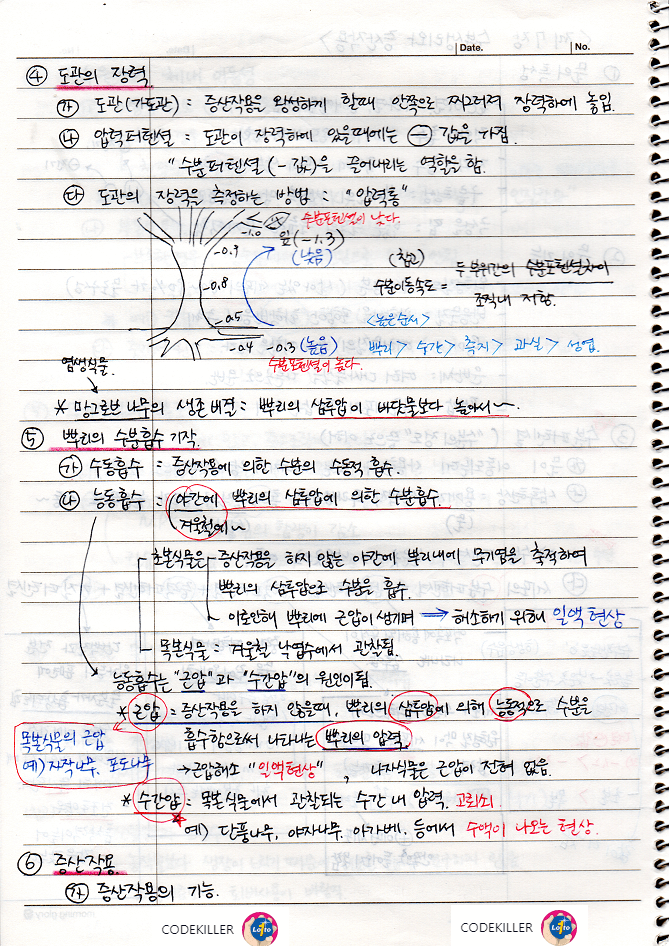 Date. No.
④ 도관의 장력
㉮ 도관(가도관) : 증산작용을 왕성하게 할때 안쪽으로 찌그러져 장력하에 놓임.
㉯ 압력퍼텐셜 : 도관이 장력하에 있을때에는 ⊖ 값을 가짐.
"수분퍼텐셜(-값)을 끌어내리는 역할을 함.
㉰ 도관의 장력을 측정하는 방법 : "압력통"
수분포텐셜이 낮다.
-1.0 잎(-1.3)
-0.9 (낮음) (참고)
-0.8 수분이동속도 = 두 부위간의 수분포텐셜차이 / 조직내 저항.
-0.5 <높은순서>
-0.4 -0.3 (높음) 뿌리 > 수간 > 측지 > 과실 > 성엽.
수분포텐셜이 높다.
염생식물.
* 망그로브 나무의 생존비결 : 뿌리의 삼투압이 바닷물보다 높아서~
⑤ 뿌리의 수분흡수 기작.
㉮ 수동흡수 : 증산작용에 의한 수분의 수동적 흡수.
㉯ 능동흡수 : 야간에 뿌리의 삼투압에 의한 수분흡수.
겨울철에~
초본식물은 - 증산작용을 하지 않는 야간에 뿌리내에 무기염을 축적하여
뿌리의 삼투압으로 수분을 흡수.
- 이로인해 뿌리에 근압이 생기며 → 해소하기 위해 일액현상
- 목본식물 : 겨울철 낙엽수에서 관찰됨.
능동흡수는 "근압"과 "수간압"의 원인이됨.
* 근압 : 증산작용을 하지 않을때, 뿌리의 삼투압에 의해 능동적으로 수분을
흡수함으로써 나타나는 뿌리의 압력.
목본식물의 근압
예) 자작나무, 포도나무
→ 근압해소 "일액현상", 나자식물은 근압이 전혀 없음.
* 수간압 : 목본식물에서 관찰되는 수간 내 압력. 고뢰쇠
예) 단풍나무, 야자나무, 아가베, 등에서 수액이 나오는 현상.
⑥ 증산작용.
㉮ 증산작용의 기능.
CODEKILLER Lotto CODEKILLER Lotto